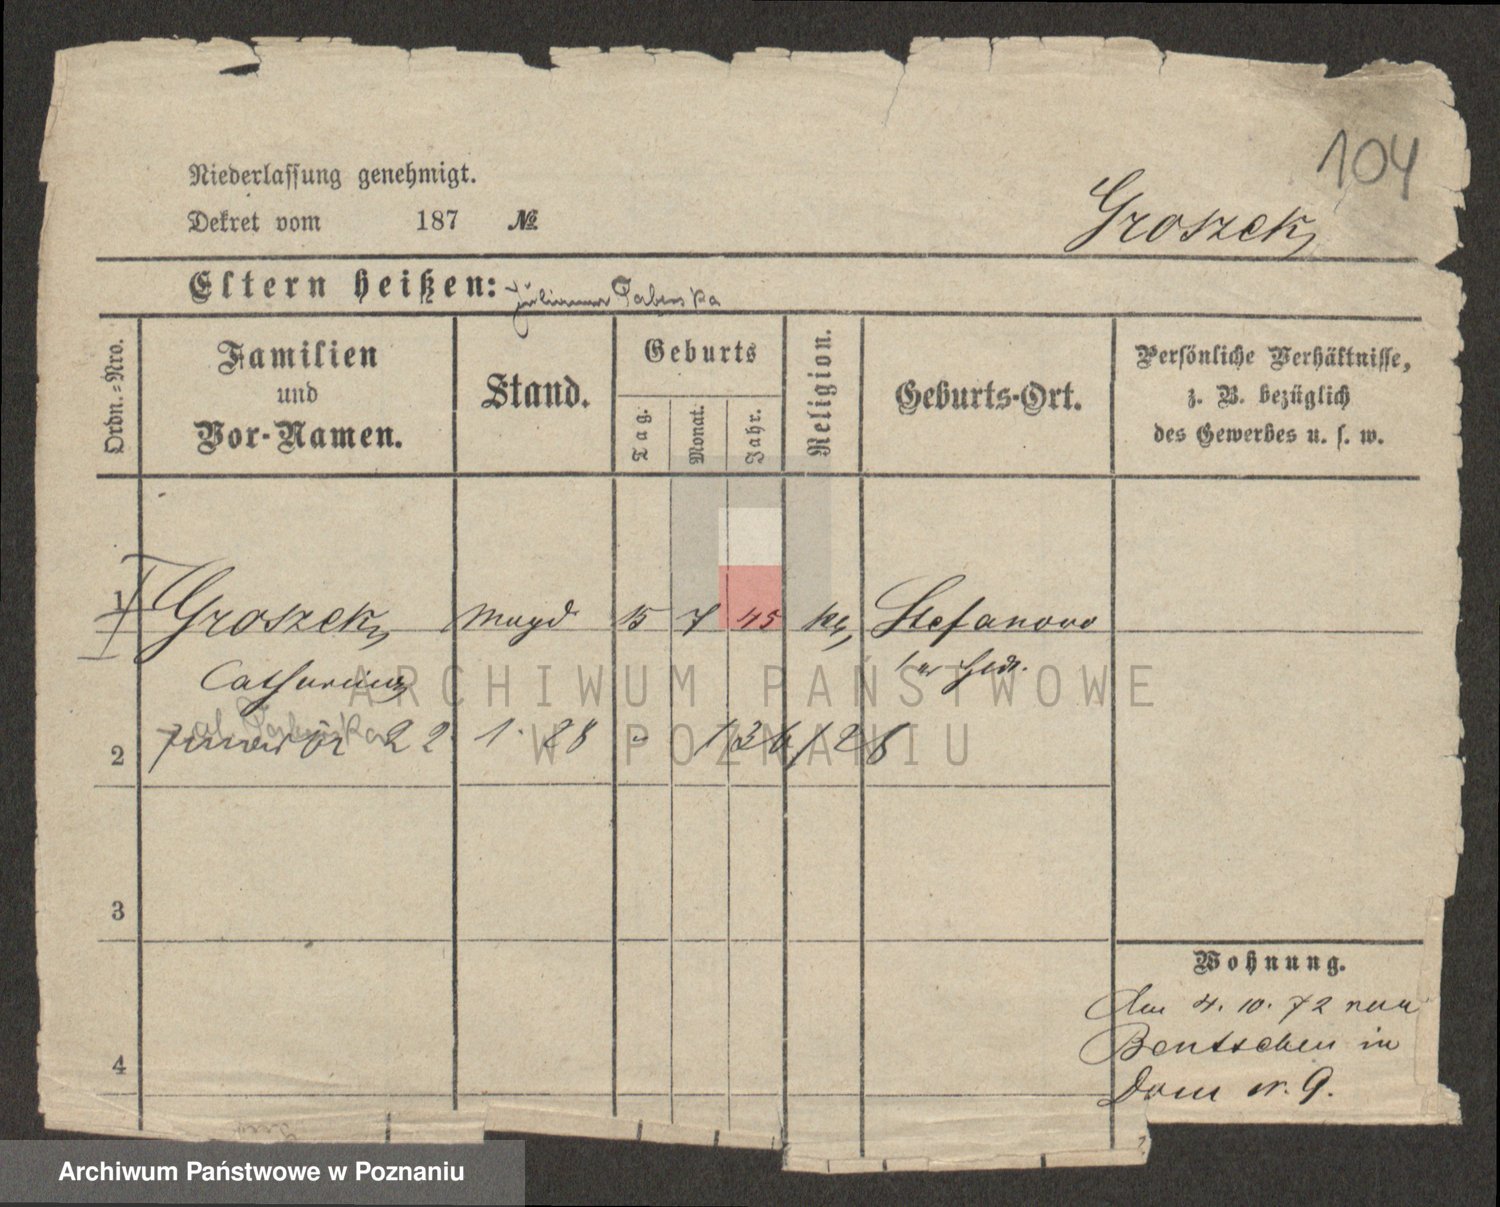 104
Niederlassung genehmigt.
Dekret vom 187 №
Groszek,
Eltern heißen: Julianna Taberska
Ordn.=Nro.
Familien
und
Vor-Namen.
Stand.
Geburts
Tag.
Monat.
Jahr.
Religion.
Geburts-Ort.
Persönliche Verhältnisse,
z. B. bezüglich
des Gewerbes u. s. w.
1 Groszek, Magd 15 7 45 Stefanowo
Catharina
2 22 1. 28 136/28
3
Wohnung.
4. 10. 72
Bentschen in
Dom N. 9.
4
ARCHIWUM PAŃSTWOWE
W POZNANIU
Archiwum Państwowe w Poznaniu